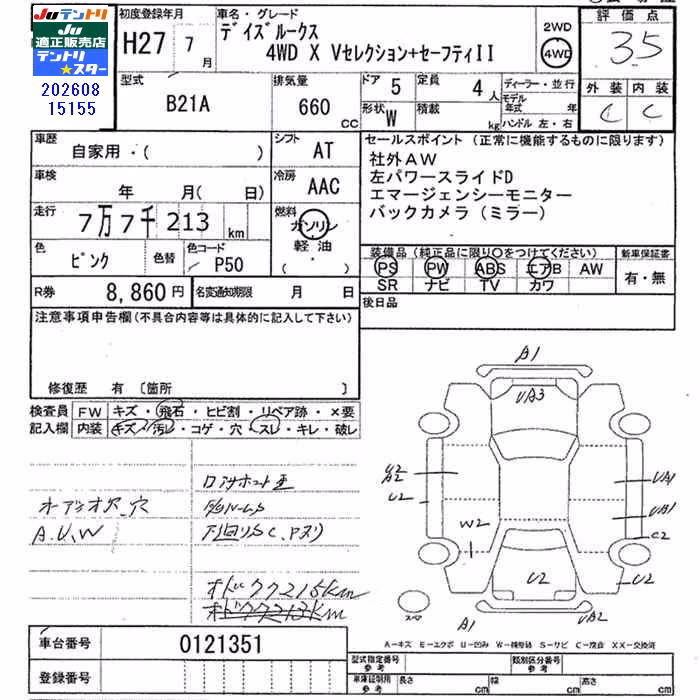 JUテントリ
JU
適正販売店
テントリ
★スター
202608
15155
初度登録年月
H27 7月
車名・グレード
デイズルークス
4WD X Vセレクション+セーフティII
2WD
4WD
評価点
3.5
外装 内装
C C
型式
B21A
排気量
660 CC
ドア 5
形状 W
定員 4人
積載 kg
ディーラー・並行
モデル年式 年
ハンドル 左・右
車歴
自家用・( )
シフト
AT
車検
年 月( 日)
冷房
AAC
走行
7万7千213 km
燃料
ガソリン
軽油
( )
色
ピンク
色替
色コード
P50
R券
8,860円
名変通知期限 月 日
セールスポイント(正常に機能するものに限ります)
社外AW
左パワースライドD
エマージェンシーモニター
バックカメラ(ミラー)
装備品(純正品に限り○をつけてください)
PS PW ABS エアB AW
SR ナビ TV カワ
新車保証書
有・無
後日品
注意事項申告欄(不具合内容等は具体的に記入して下さい)
修復歴 有〔箇所 〕
検査員記入欄
FW キズ・飛石・ヒビ割・リペア跡・×要
内装 キズ・汚レ・コゲ・穴・スレ・キレ・破レ
オーディオ穴、穴
A.U.W
下回りSC、Pヌリ
オドククワ215km
A1
UA3
U2
A2
U2
UA1
UA1
C2
W2
U2
U2
A1
UA2
スペア
A-キズ E-エクボ U-凹み W-補修跡 S-サビ C-腐食 XX-交換済
車台番号
0121351
登録番号
型式指定番号 参考
類別区分番号 参考
車庫証明用 参考
長さ cm
幅 cm
高さ cm